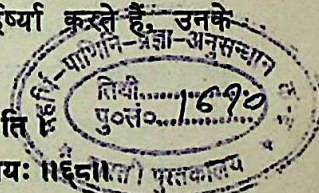 र्ष्या करते हैं, उनके
पाणिनि-प्रज्ञा-अनुसन्धान
तिथी
ति ।
पु०सं० 1690
यः ॥६८॥
पुस्तकालय